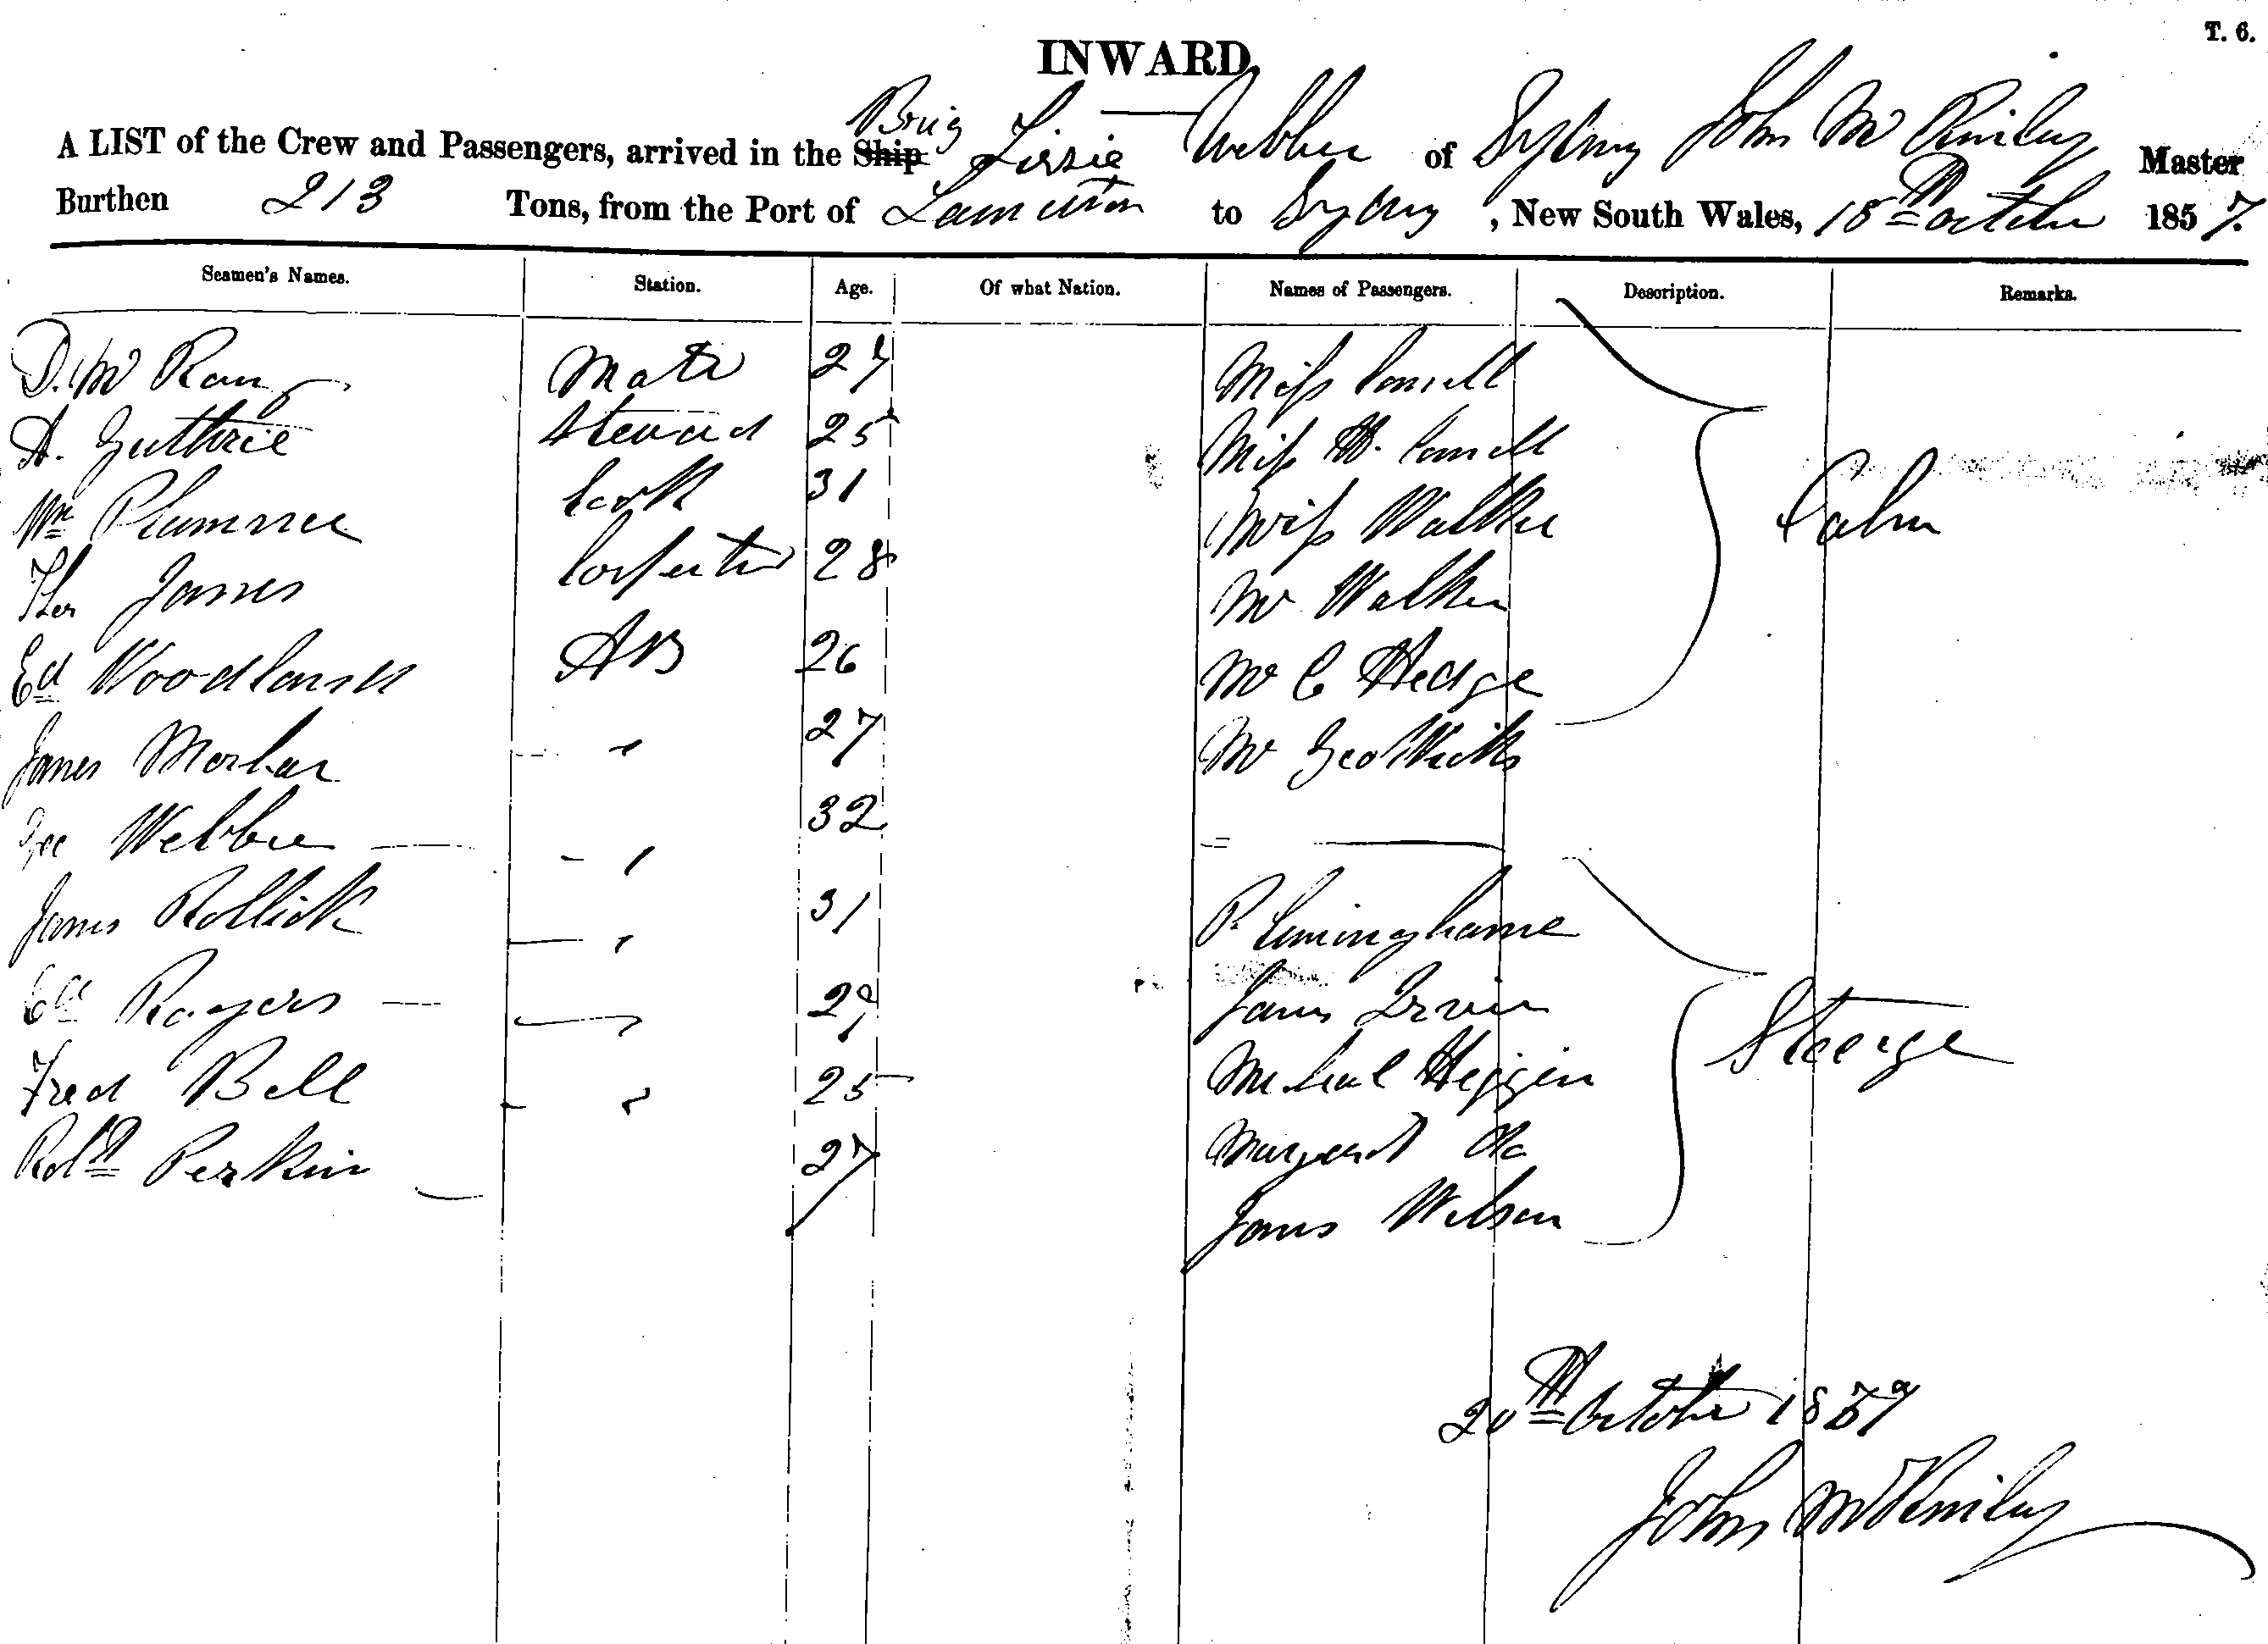 T. 6.
INWARD
A LIST of the Crew and Passengers, arrived in the Ship Brig Lizzie Webber of Sydney John Mc Kinlay Master
Burthen 213 Tons, from the Port of Launceston to Sydney, New South Wales, 18th October 1857.
Seamen's Names. Station. Age. Of what Nation. Names of Passengers. Description. Remarks.
D. Mc Mate Miss
A. Guthrie Steward 25 Miss
Wm Plummer Cook 31 Miss Walker Cabin
James Carpenter 28 Mr Walker
Ed AB 26 Mr C Hedge
James 27 Mr Geo
Webber 32
James Rollick 31 P. Cuninghame
Rogers 29 James Irvin Steerage
Fred Bell 25 Michael Higgin
Robt Perkin 27 Margaret do
James Wilson
20th October 1857
John McKinlay